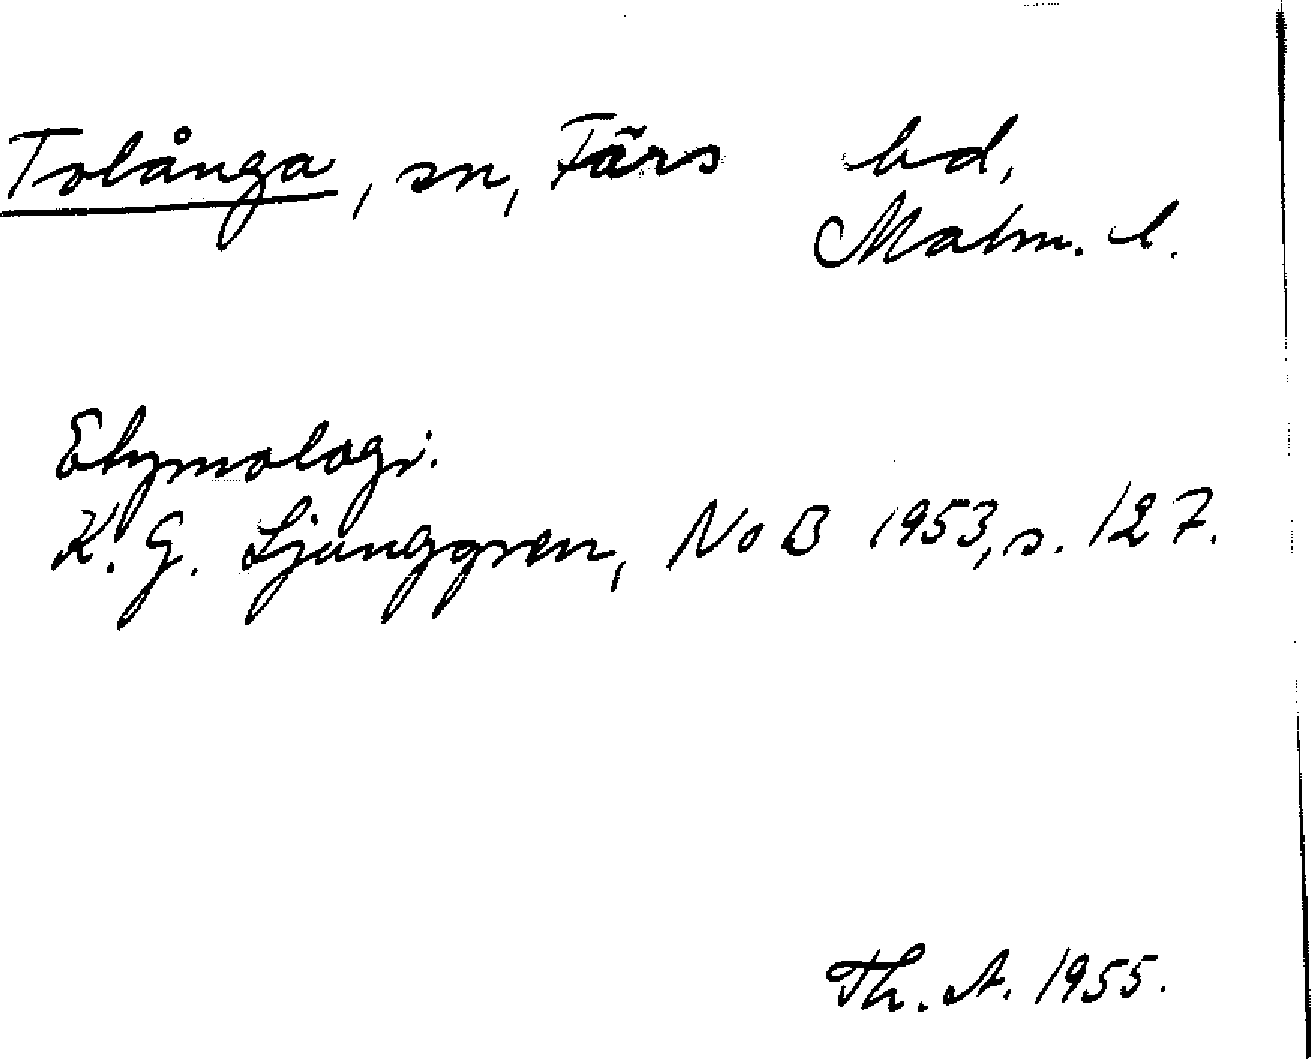 Tolånga, sn, Färs hd,
Malm. l.
Etymologi.
K. G. Ljunggren, NoB 1953, s. 127.
Th. A. 1955.